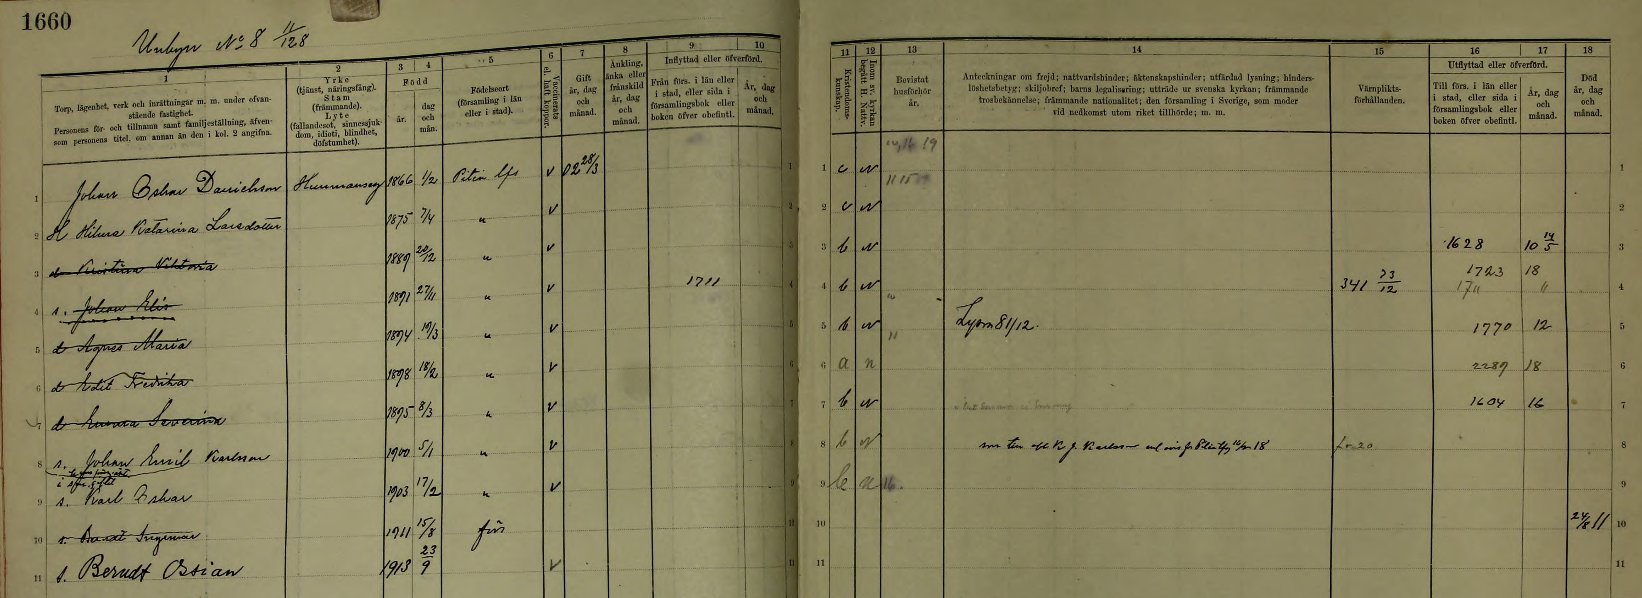 1660
Unbyn No 8 11/128
1
2
3
4
5
6
7
8
9
10
Torp, lägenhet, verk och inrättningar m. m. under ofvan-
stående fastighet.
Personens för- och tillnamn samt familjeställning, äfven-
som personens titel, om annan än den i kol. 2 angifna.
Yrke
(tjänst, näringsfång).
Stam
(främmande).
Lyte
(fallandesot, sinnessjuk-
dom, idioti, blindhet,
döfstumhet).
Född
år.
dag
och
mån.
Födelseort
(församling i län
eller i stad).
Vaccinerats
el. haft koppor.
Gift
år, dag
och
månad.
Änkling,
änka eller
frånskild
år, dag
och
månad.
Inflyttad eller öfverförd.
Från förs. i län eller
i stad, eller sida i
församlingsbok eller
boken öfver obefintl.
År, dag
och
månad.
11
12
13
14
15
16
17
18
Kristendoms-
kunskap.
Inom sv. kyrkan
begått H. Nattv.
Bevistat
husförhör
år.
Anteckningar om frejd; nattvardshinder; äktenskapshinder; utfärdad lysning; hinders-
löshetsbetyg; skiljobref; barns legalisering; utträde ur svenska kyrkan; främmande
trosbekännelse; främmande nationalitet; den församling i Sverige, som moder
vid nedkomst utom riket tillhörde; m. m.
Värnplikts-
förhållanden.
Utflyttad eller öfverförd.
Till förs. i län eller
i stad, eller sida i
församlingsbok eller
boken öfver obefintl.
År, dag
och
månad.
Död
år, dag
och
månad.
1 Johan Oskar Danielsson Hemmansäg 1866 1/2 Piteå lfs v 02 28/3 1 c n 1
2 H Hilma Katarina Larsdotter 1875 7/4 " v 2 c n 2
3 d Kristina Viktoria 1889 20/12 " v 3 b n 1628 10 14/5 3
4 s. Johan Elis 1891 27/11 " v 1711 4 b n 341 73/12 1723 18 4
5 d Agnes Maria 1894 19/3 " v 5 b n Lysn 8 1/12. 1770 12 5
6 d Edit Fredrika 1898 18/2 " v 6 a n 2289 18 6
7 d Emma Severina 1895 8/3 " v 7 b n 1604 16 7
8 s. Johan Emil Karlsson 1900 5/1 " v 8 b n 8
9 s. Karl Oskar 1903 17/2 " v 9 b n 16. 9
10 s. Berndt Ingemar 1911 15/8 förs 10 24/8 11 10
11 s. Berndt Ossian 1913 23/9 v 11 11